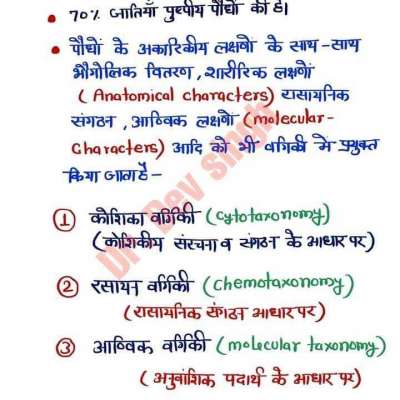 • 70% जातियाँ पुष्पीय पौधों की है।
• पौधों के अकारिकीय लक्षणों के साथ-साथ
भौगोलिक वितरण, शारीरिक लक्षणों
(Anatomical characters) रासायनिक
संगठन, आण्विक लक्षणों (molecular-
Characters) आदि को भी वर्गिकी मे प्रयुक्त
किया जाता है-
① कोशिका वर्गिकी (cytotaxonomy)
(कोशिकीय संरचना व संगठन के आधार पर)
② रसायन वर्गिकी (Chemotaxonomy)
(रासायनिक संगठन आधार पर)
③ आण्विक वर्गिकी (molecular taxonomy)
(अनुवांशिक पदार्थ के आधार पर)
Dr. Dev singh